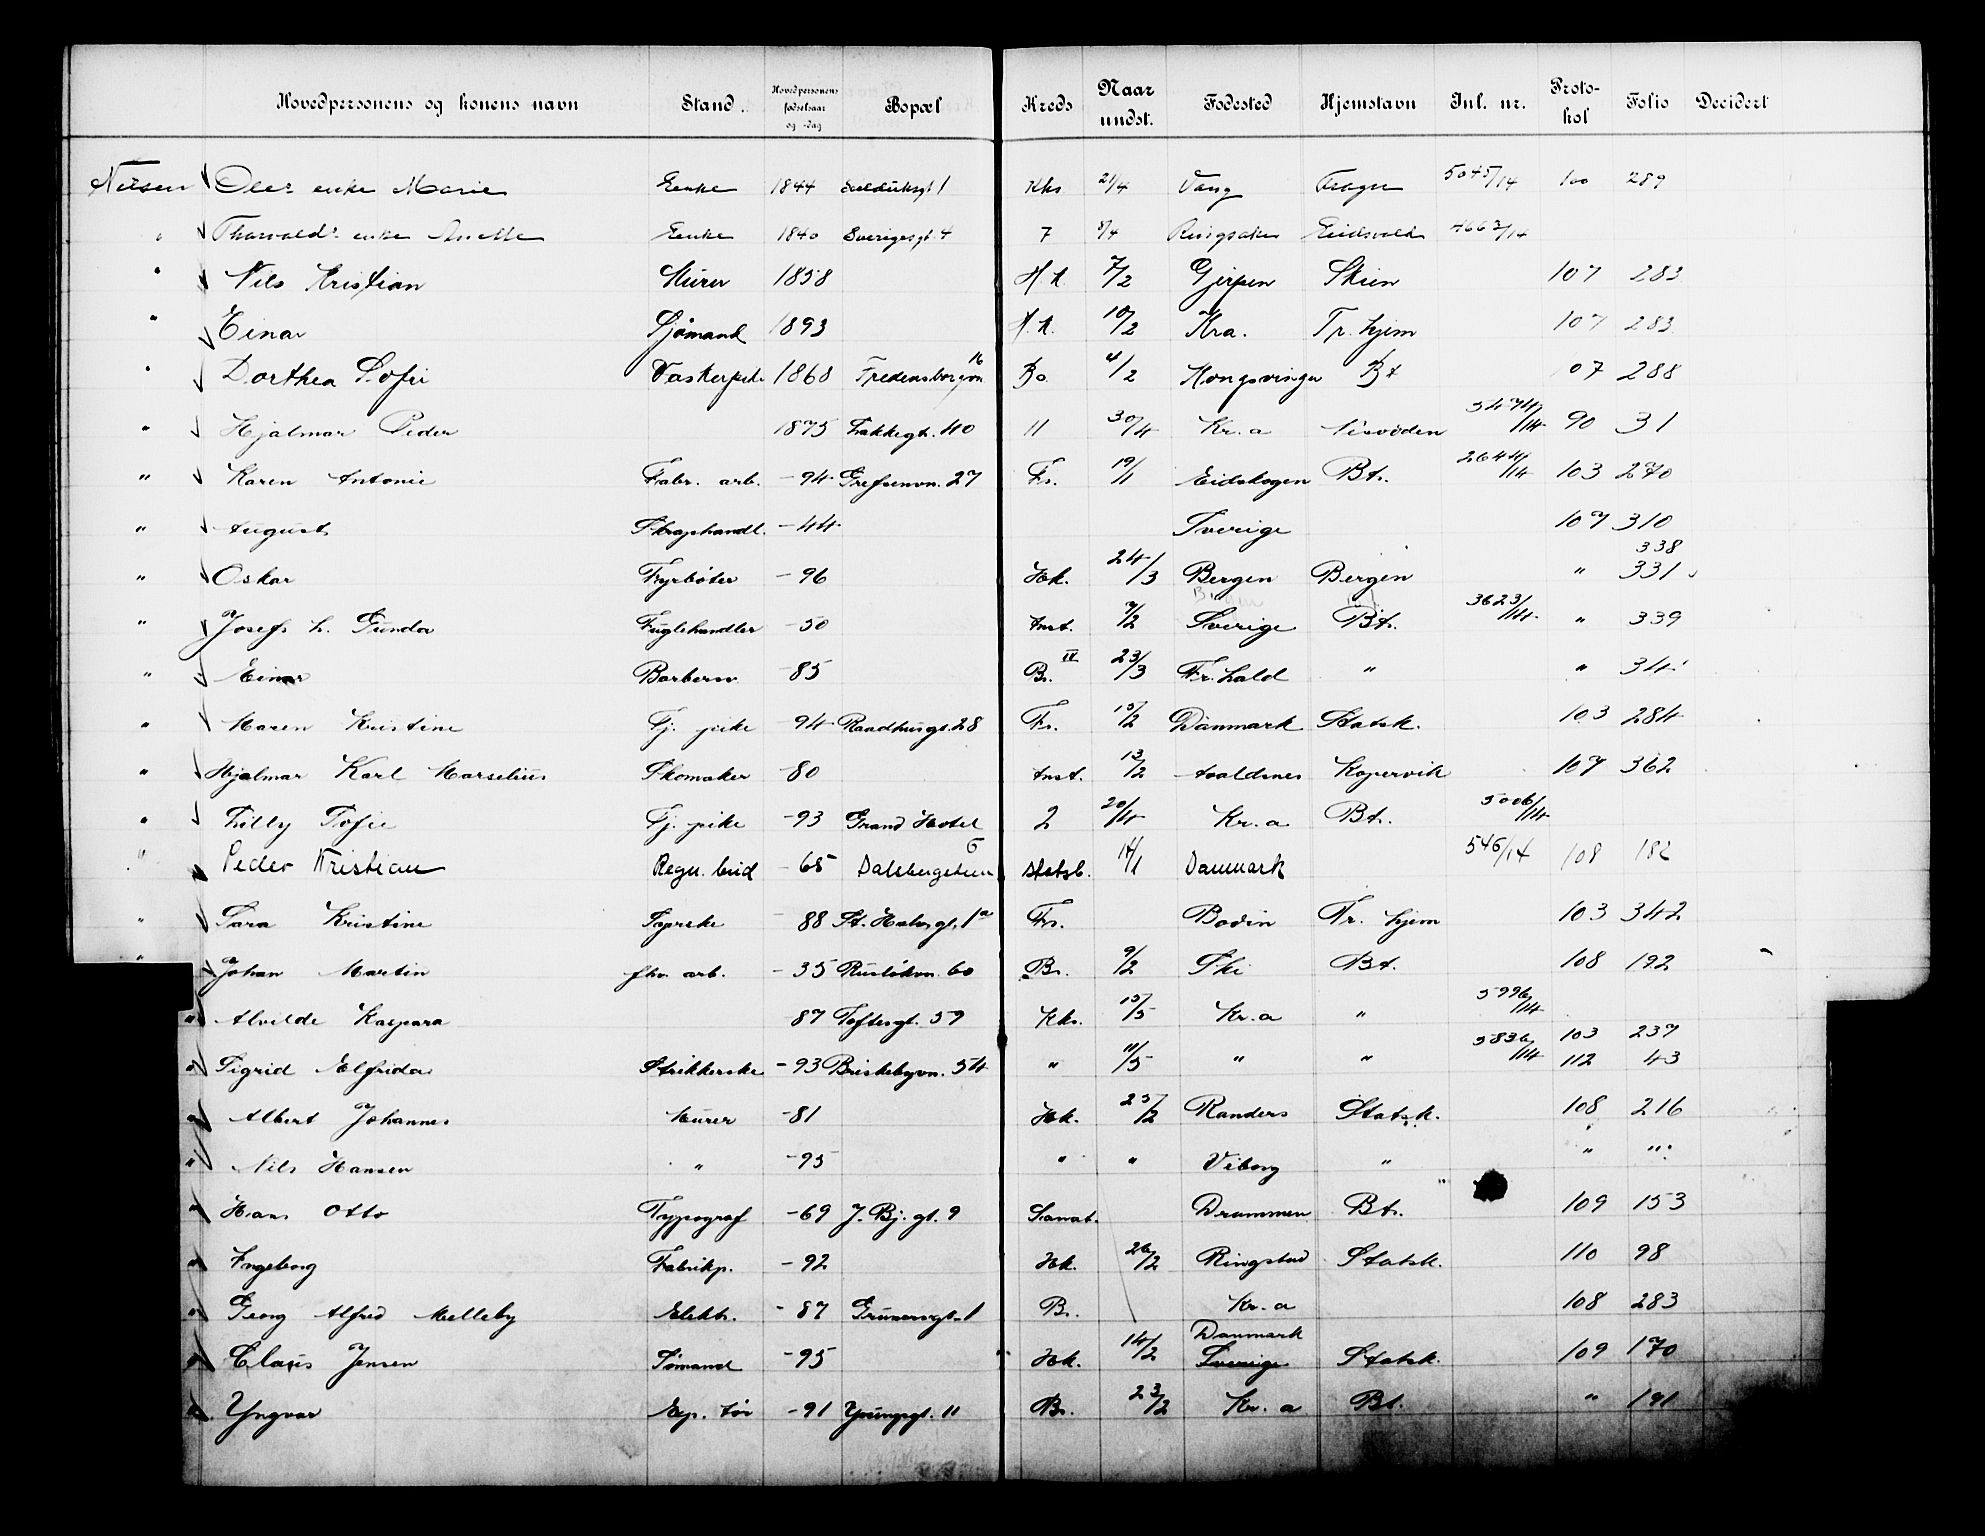 Hovedpersonens og konens navn Stand. Hovedpersonens fødselsaar og -dag Bopæl Kreds Naar undst. Fødested Hjemstavn Inl. nr. Protokol Folio Decidert
Nilsen Oles enke Marie Enke 1844 Kks. 21/4 Vang 5045/14 100 289
" Thorvalds enke Anette Enke 1840 Sverigesgt 4 7 8/4 Ringsaker Eidsvold 4662/14
" Nils Kristian Murer 1858 H.K. 7/2 Gjerpen Skien 107 283
" Einar Sjømand 1893 H.K. 10/2 Kra. Tr. hjem 107 283
" Dorthea Sofie Vaskerpike 1868 Fredensborgvn 16 Bo 4/2 Kongsvinger Bt 107 288
" Hjalmar Peder 1875 Lakkegt. 40 11 30/4 Kr.a 5474/14 90 31
" Karen Antonie Fabr. arb. -94 Grefsenvn. 27 Fr. 19/1 Eidskogen Bt. 2644/14 103 270
" August Skraphandl. -44 Sverige 107 310
338
" Oskar Fyrbøter -96 Hk. 24/3 Bergen Bergen " 331
" Josefs h. Gunda Fuglehandler -50 Anst. 7/2 Sverige Bt. 3623/14 " 339
" Einar Barbersv. -85 Br. IV 23/3 Fr.hald " " 341
" Maren Kristine Tj. pike -94 Raadhusgt. 28 Fr. 15/2 Danmark Statsk. 103 284
" Hjalmar Karl Marselius Skomaker -80 Anst. 13/2 Avaldsnes Kopervik 107 362
" Lilly Sofie Tj. pike -93 Grand Hotel 2 20/4 Kr.a Bt. 5006/14
" Peder Kristian Regn. bud -65 Dalsbergstien 6 Statsb. 14/1 Danmark 546/14 108 182
" Sara Kristine Syerske 88 St. Halvgt. 1a Fr. Bodin Tr. hjem 103 342
" Johan Martin fhv. arb. -35 Ruseløkvn. 60 Br. 9/2 Ski Bt. 108 192
" Alvilde Kaspara 87 Toftesgt. 59 Kks. 15/5 Kr.a " 5996/14
103 237
" Sigrid Elfrida Strikkerske -93 Briskebyvn. 54 " 11/5 " " 5836/14 112 43
" Albert Johannes Murer -81 Hk. 25/2 Randers Statsk. 108 216
" Nils Hansen " -95 " " Viborg " " "
" Hans Otto Typograf -69 J. Bj. gt. 9 Sanat. Drammen Bt. 109 153
" Ingeborg Fabrikp. -92 Hk. 26/2 Ringstad Statsk. 110 98
" Georg Alfred Melleby Elektr. -87 Grünersgt. 1 Br. Kr.a 108 283
Danmark
" Claus Jensen Sømand -95 Hk. 14/2 Sverige Statsk. 109 170
" Yngvar -91 Youngsgt. 11 Br. 23/2 Kr.a Bt. " 191